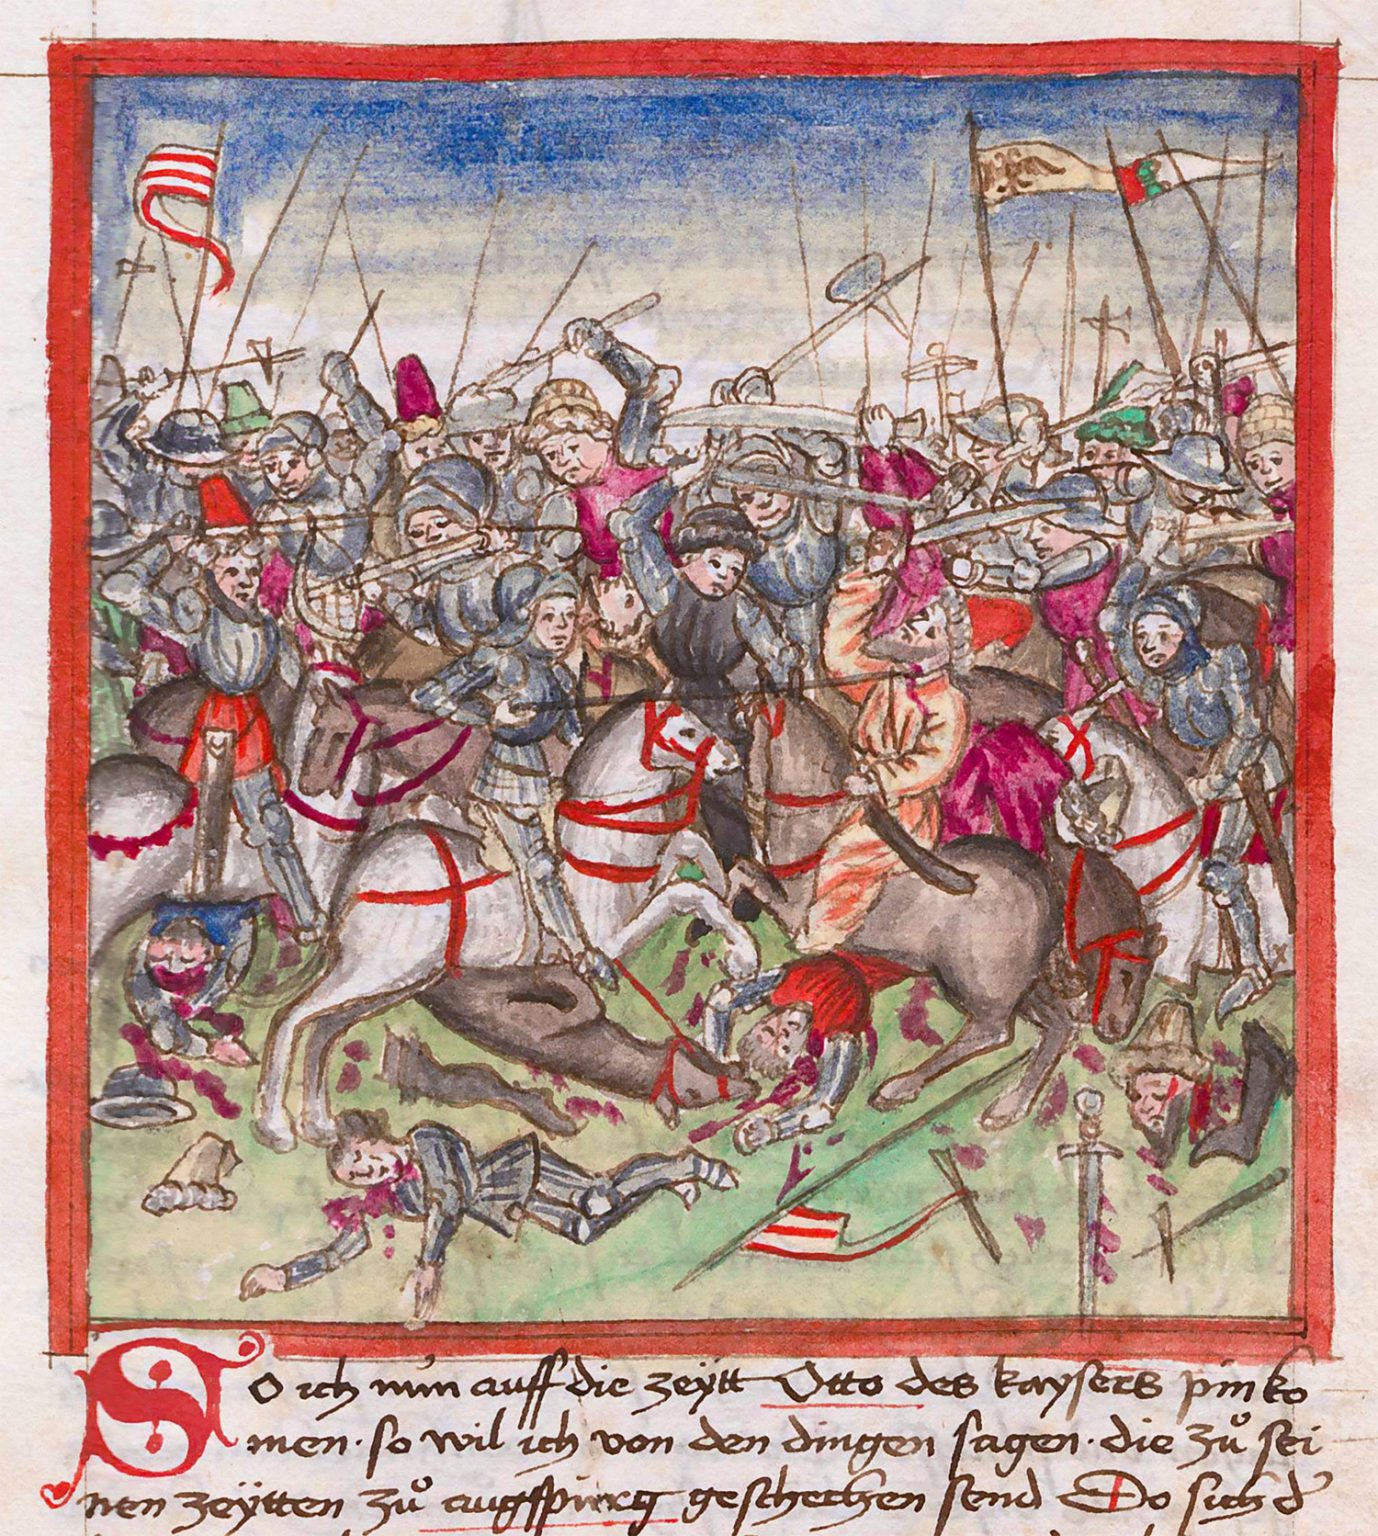 So ich nun auff die zeÿtt Otto des kaysers pin ko
men · so wil ich von den dingen sagen · die zů sei
nen zeÿtten zů augspurg geschechen send Do sich d